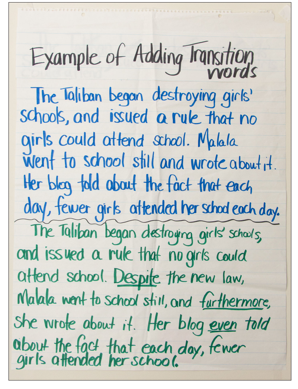 Example of Adding Transition
words
The Taliban began destroying girls'
schools, and issued a rule that no
girls could attend school. Malala
went to school still and wrote about it.
Her blog told about the fact that each
day, fewer girls attended her school each day.
The Taliban began destroying girls' schools,
and issued a rule that no girls could
attend school. Despite the new law,
Malala went to school still, and furthermore,
she wrote about it. Her blog even told
about the fact that each day, fewer
girls attended her school.